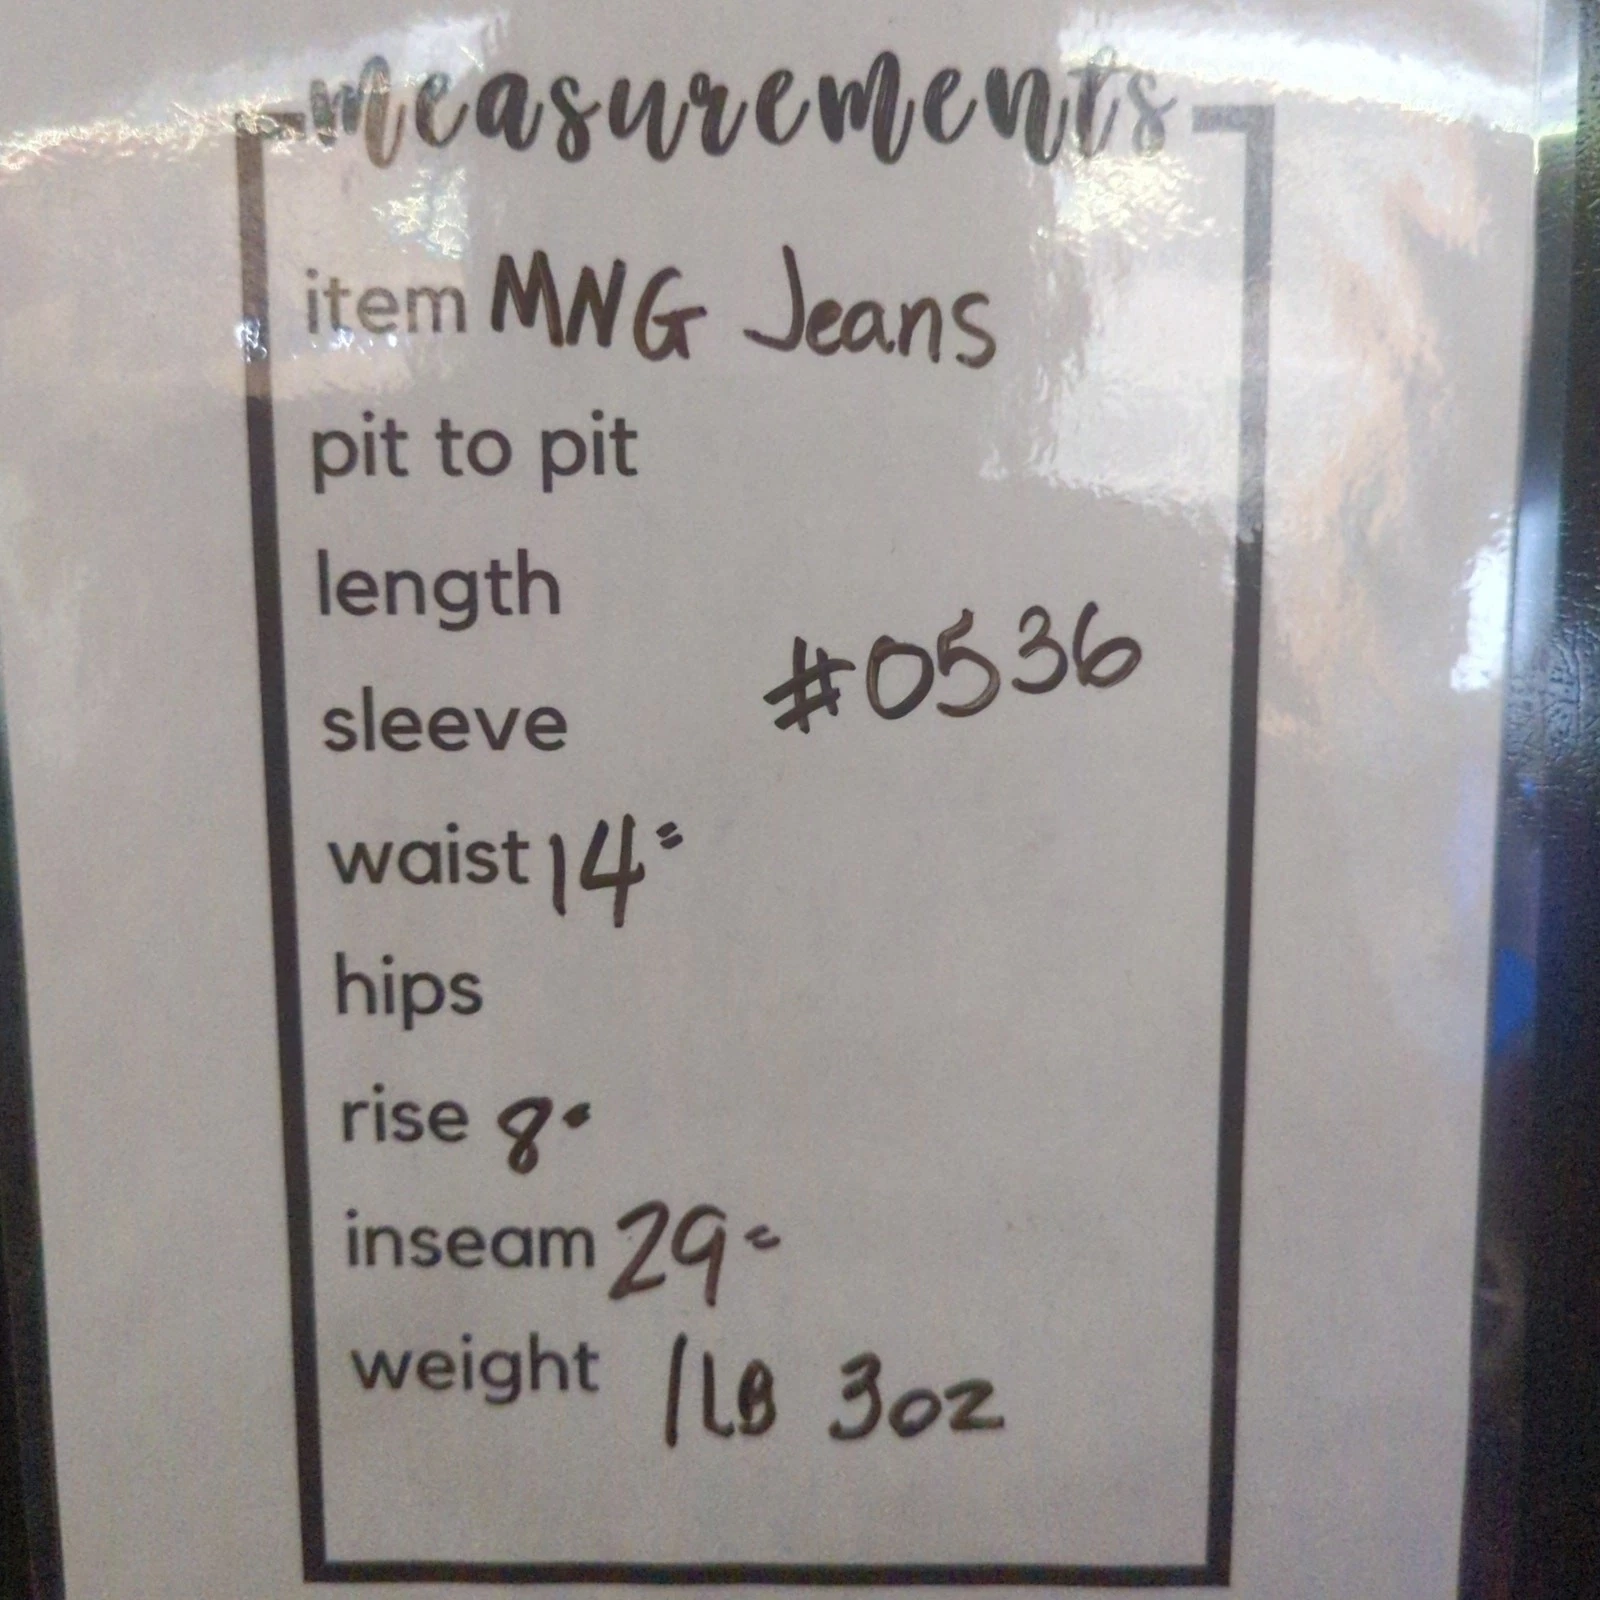 measurements
item MNG Jeans
pit to pit
length
#0536
sleeve
waist 14"
hips
rise 8"
inseam 29"
weight 1LB 3oz